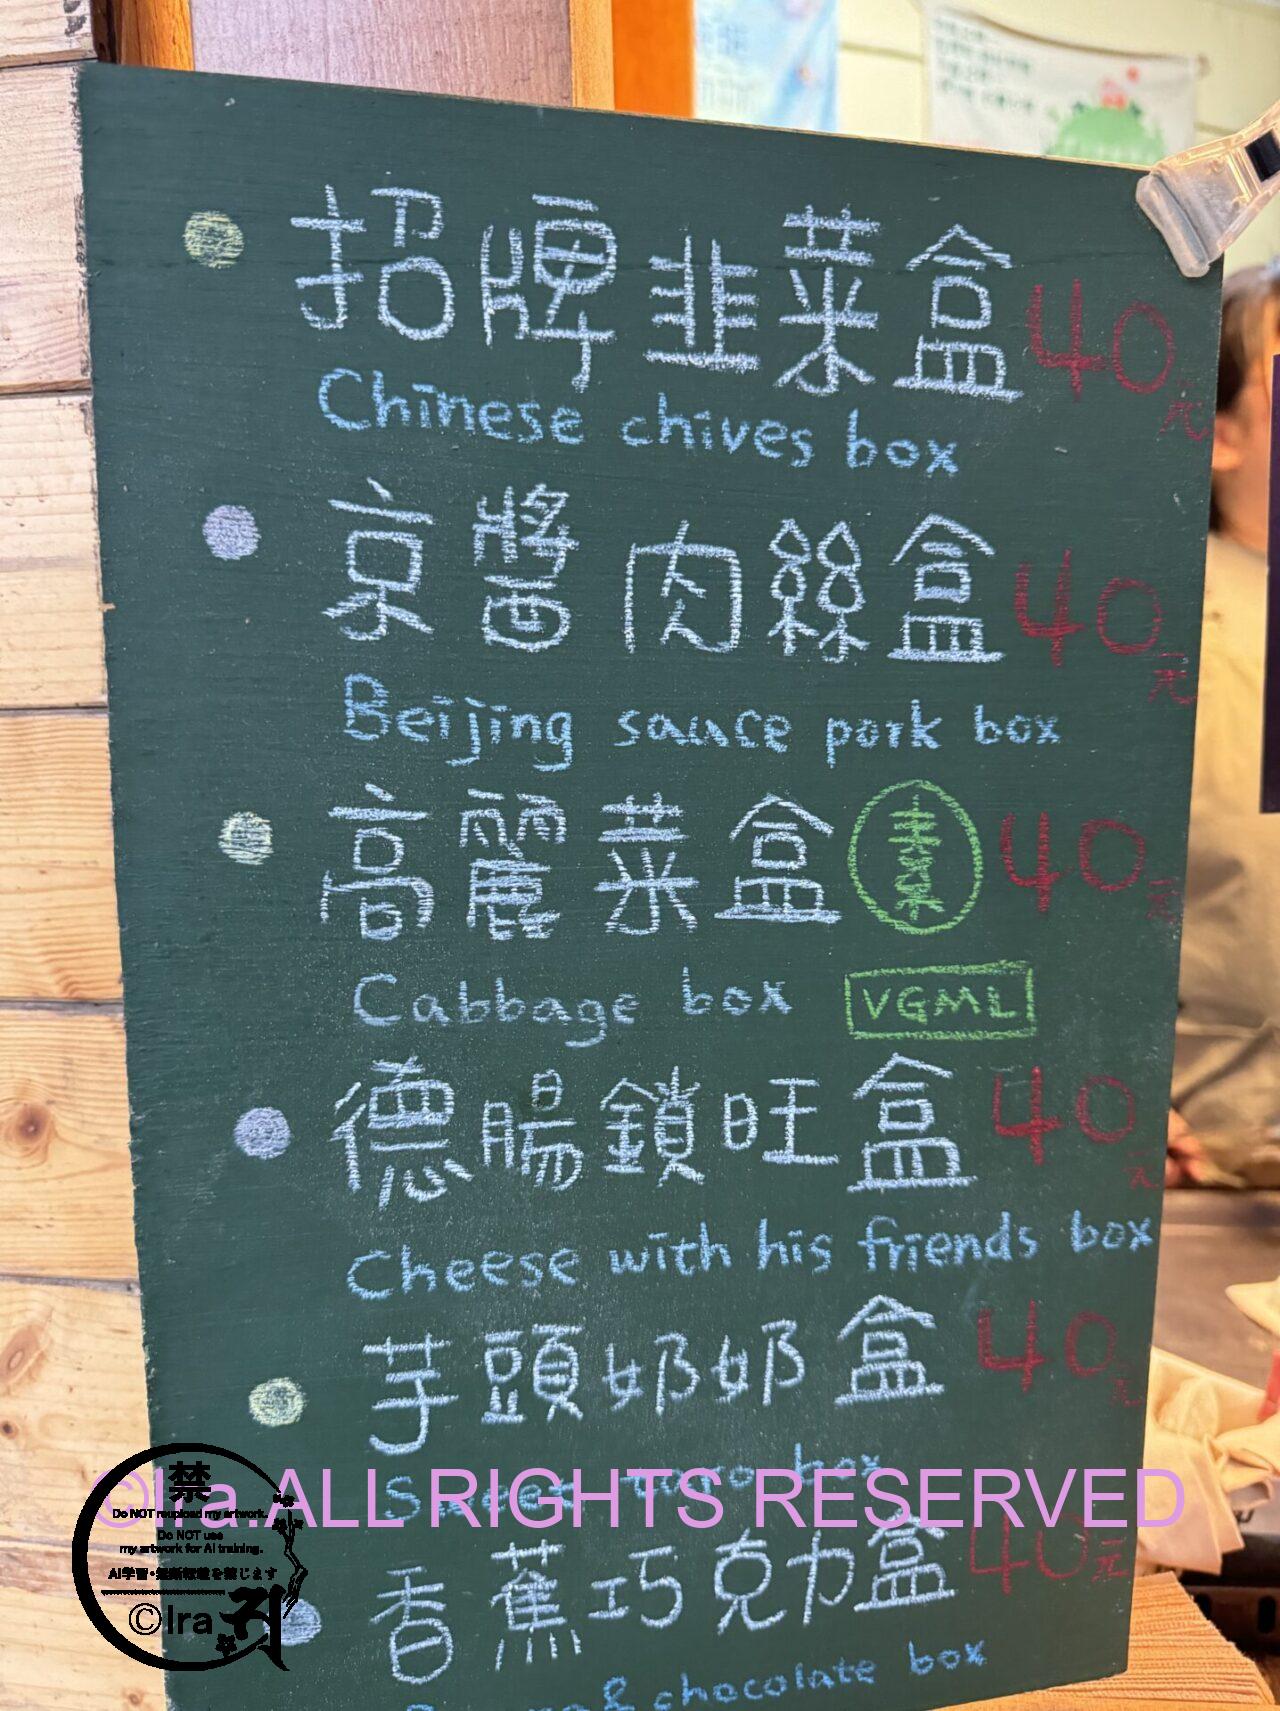 招牌韭菜盒 40元
Chinese chives box
京醬肉絲盒 40元
Beijing sauce pork box
高麗菜盒 素 40元
Cabbage box VGML
德腸鎖旺盒 40元
Cheese with his friends box
芋頭奶奶盒 40元
Sweet taro box
©Ira.ALL RIGHTS RESERVED
香蕉巧克力盒 40元
& chocolate box
禁
Do NOT reupload my artwork.
Do NOT use
my artwork for AI training.
AI学習・無断転載を禁じます
©Ira